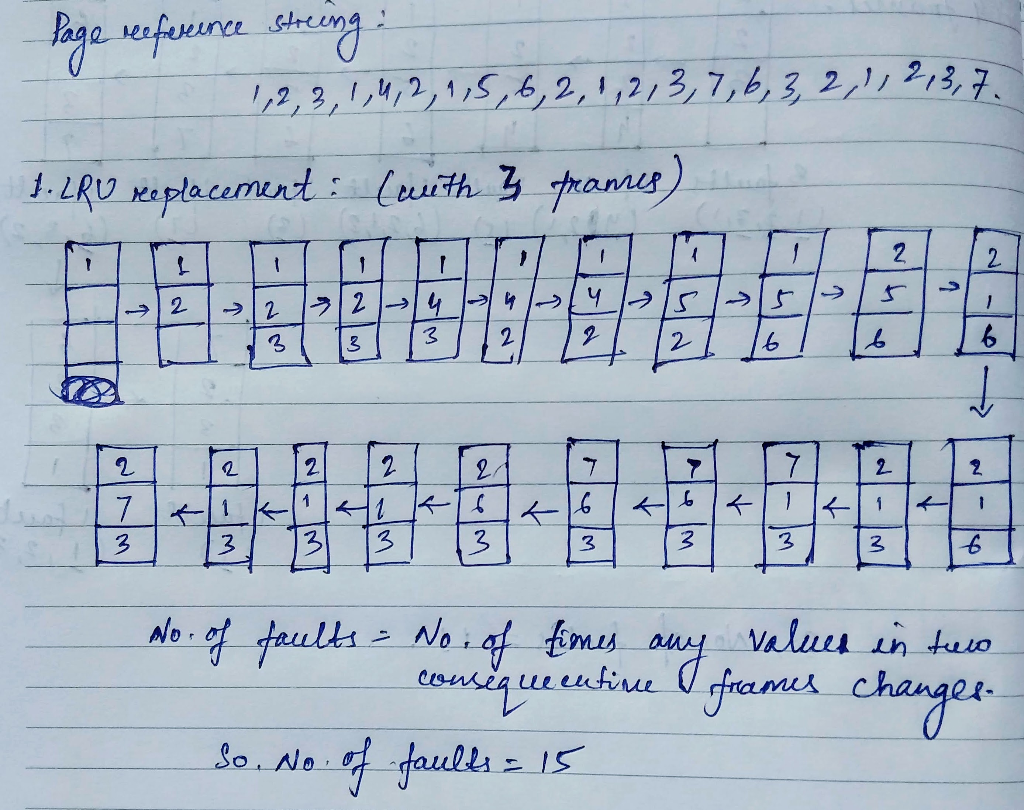 Page reference string :
1,2,3,1,4,2,1,5,6,2,1,2,3,7,6,3,2,1,2,3,7.
1. LRU replacement : (with 3 frames)
1 → 1 → 1 → 1 → 1 → 1 → 1 → 1 → 1 → 2 → 2
2 2 2 4 4 4 5 5 5 1
3 3 3 2 2 2 6 6 6
↓
2 ← 2 ← 2 ← 2 ← 2 ← 7 ← 7 ← 7 ← 2 ← 2
7 1 1 1 6 6 6 1 1 1
3 3 3 3 3 3 3 3 3 6
No. of faults = No. of times any values in two
consequecutive frames changes.
So. No. of faults = 15